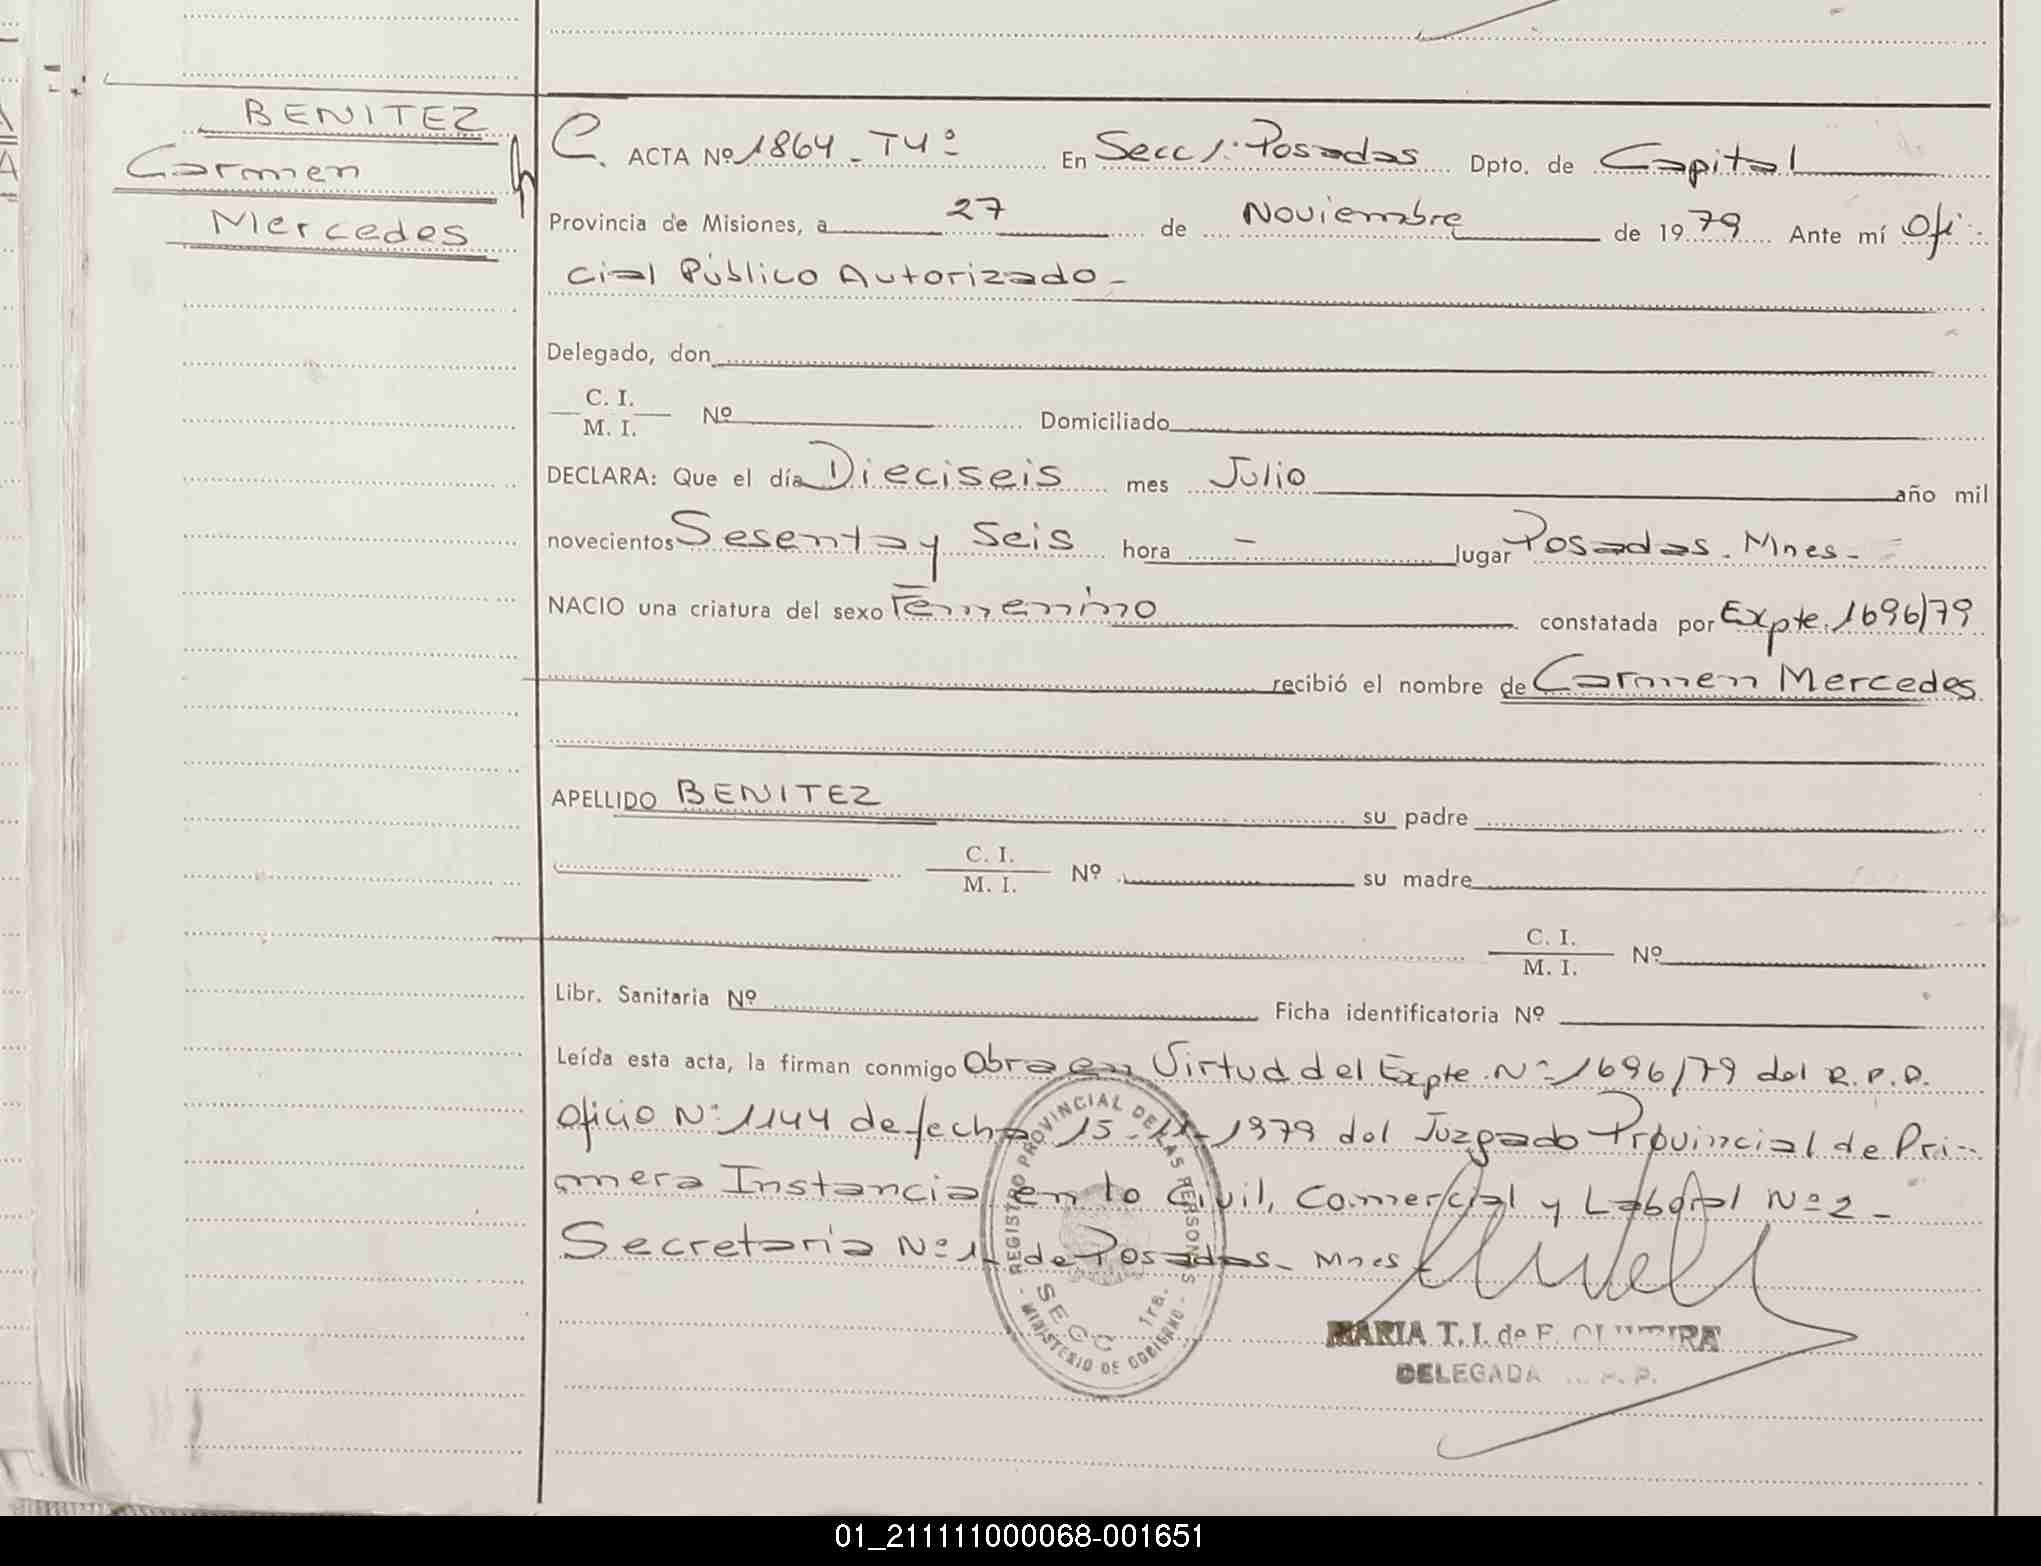 BENITEZ
Carmen
Mercedes
C. ACTA Nº 1864 - T4º En Secc 1: Posadas Dpto. de Capital
Provincia de Misiones, a 27 de Noviembre de 1979 Ante mí Ofi-
cial Público Autorizado -
Delegado, don
C. I.
M. I. Nº Domiciliado
DECLARA: Que el día Dieciseis mes Julio año mil
novecientos Sesenta y Seis hora - lugar Posadas. Mnes -
NACIO una criatura del sexo Femenino constatada por Expte. 1696/79
recibió el nombre de Carmen Mercedes
APELLIDO BENITEZ su padre
C. I.
M. I. Nº su madre
C. I.
M. I. Nº
Libr. Sanitaria Nº Ficha identificatoria Nº
Leída esta acta, la firman conmigo Obra en Virtud del Expte. Nº 1696/79 del R.P.P.
Oficio Nº 1144 de fecha 15-11-1979 del Juzgado Provincial de Pri-
mera Instancia en lo Civil, Comercial y Laboral Nº 2 -
Secretaría Nº 1 - de Posadas - Mnes -
REGISTRO PROVINCIAL DE LAS PERSONAS
SECC 1ra.
- MINISTERIO DE GOBIERNO -
MARIA T. I. de F.
DELEGADA
01_211111000068-001651